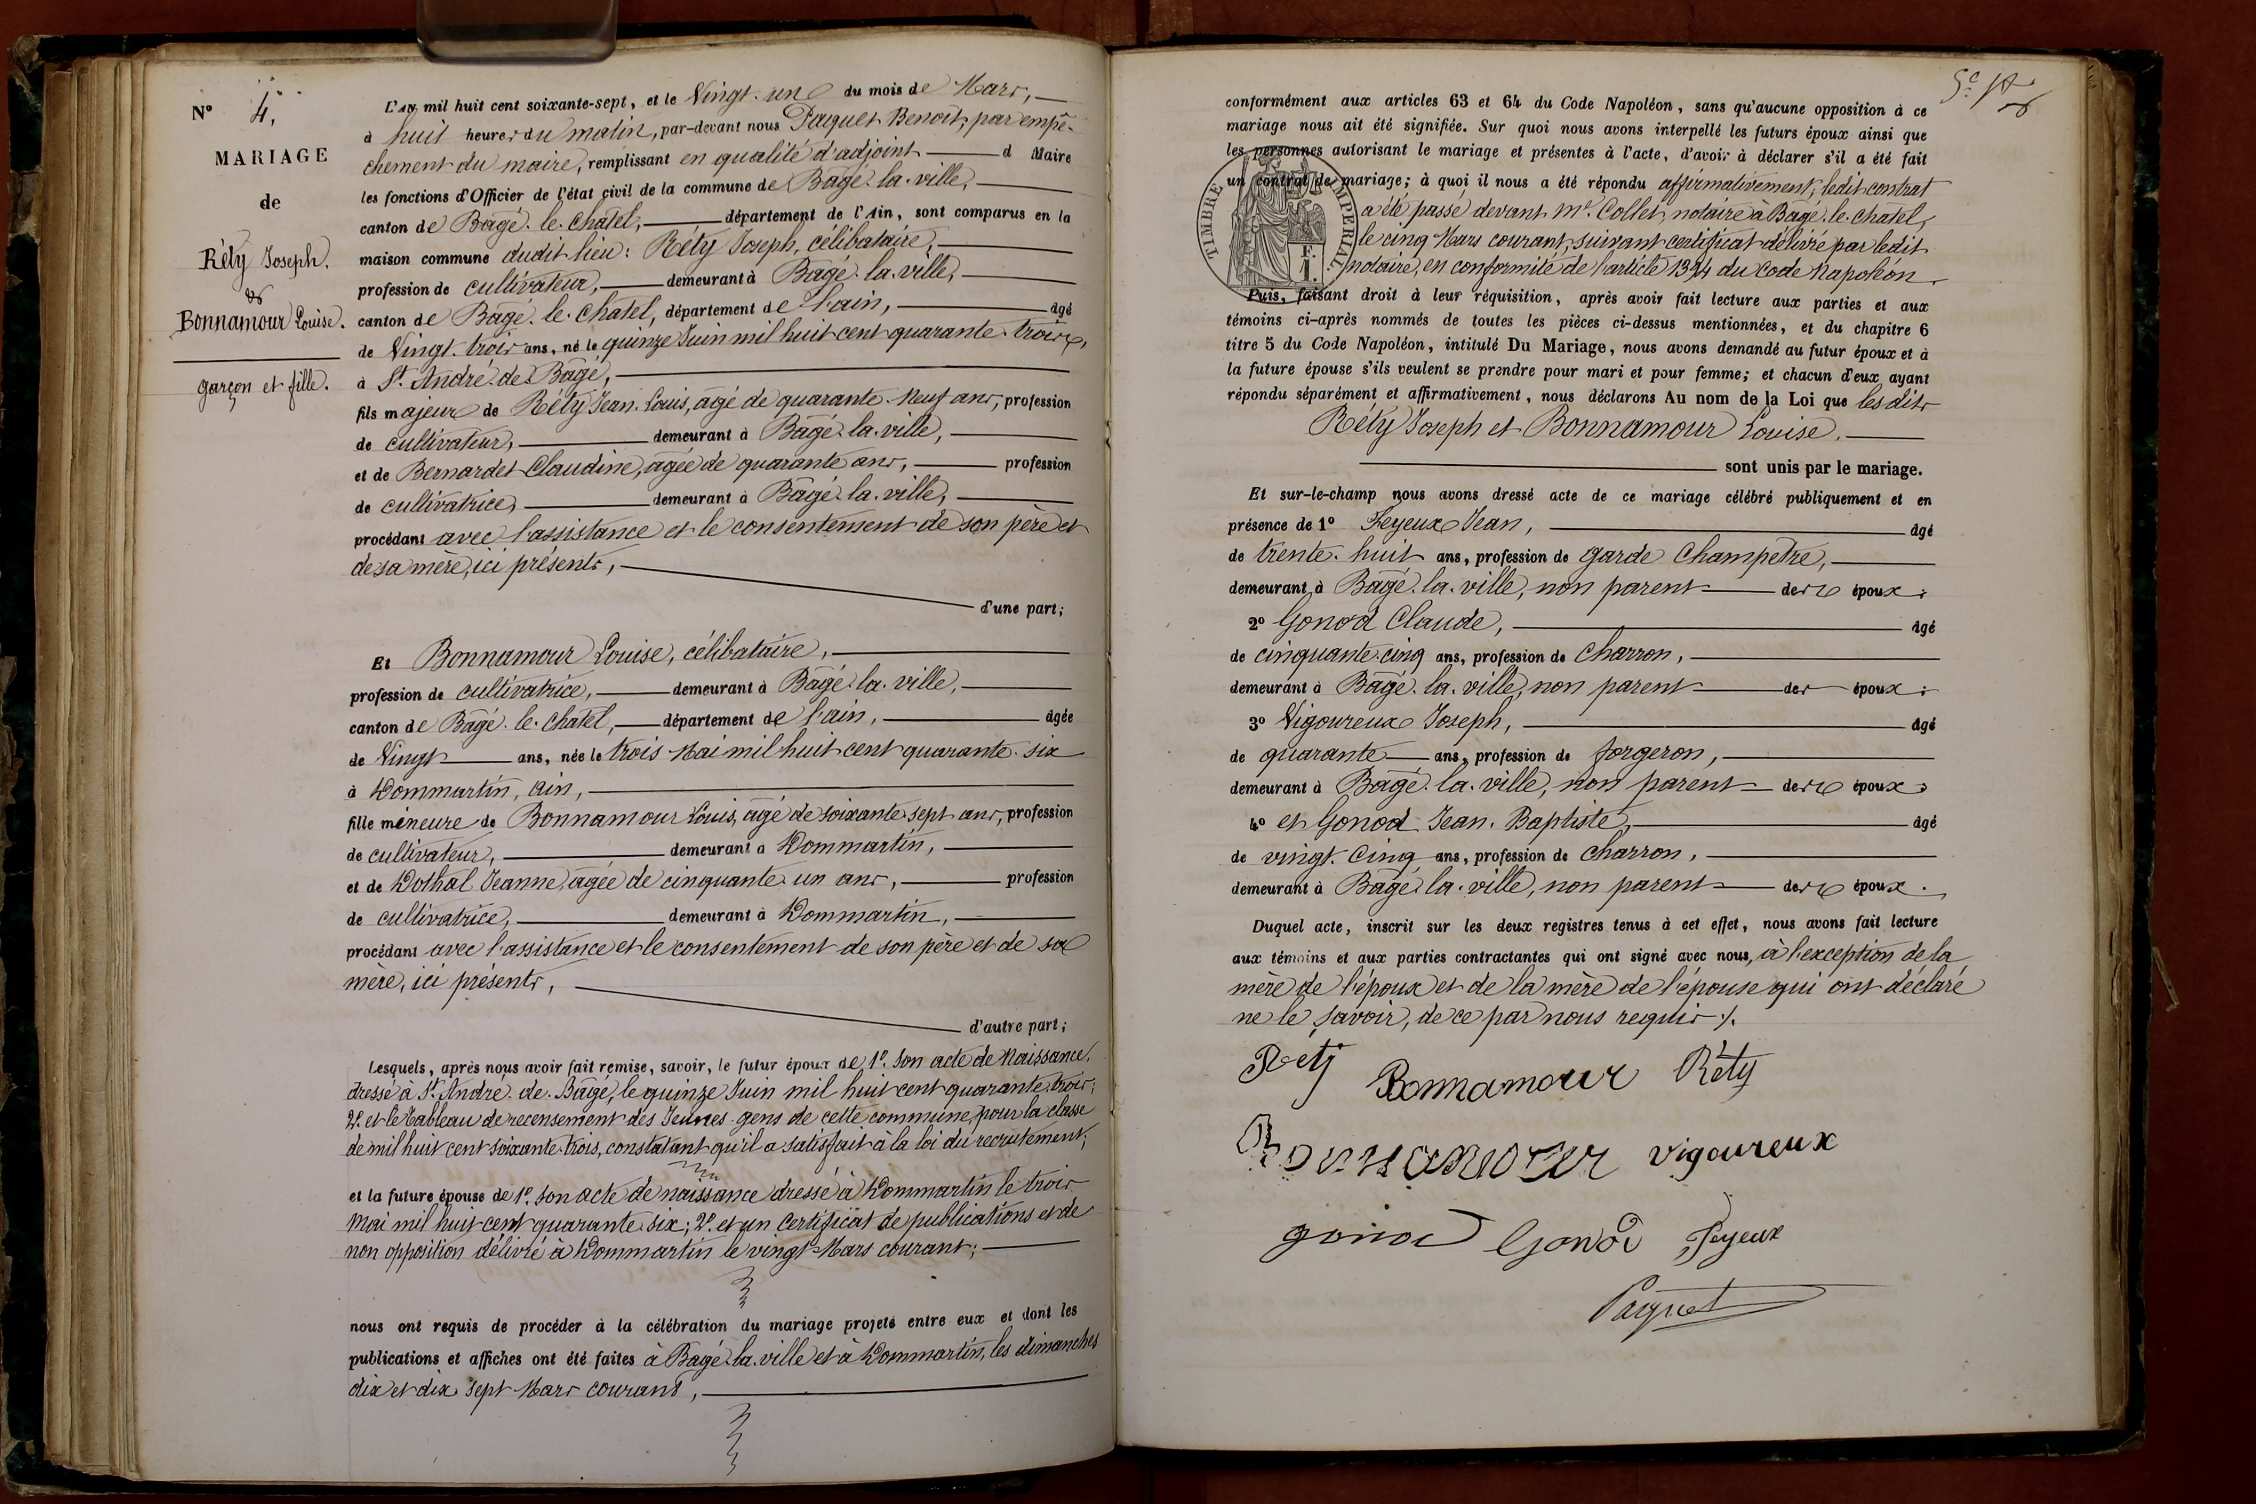 N° 4.
MARIAGE
de
Réty Joseph.
&
Bonnamour Louise.
garçon et fille.
L'an mil huit cent soixante-sept, et le Vingt-un du mois de Mars,
à huit heures du matin, par-devant nous Paquet Benoît, par empê-
chement du maire, remplissant en qualité d'adjoint d Maire
les fonctions d'Officier de l'état civil de la commune de Bâgé-la-ville,
canton de Bâgé-le-Châtel, département de l'Ain, sont comparus en la
maison commune dudit lieu: Réty Joseph, célibataire,
profession de cultivateur, demeurant à Bâgé-la-ville,
canton de Bâgé-le-Châtel, département de l'ain, âgé
de Vingt-trois ans, né le quinze Juin mil huit cent quarante-trois,
à St. André-de-Bâgé,
fils majeur de Réty Jean-Louis, âgé de quarante-neuf ans, profession
de cultivateur, demeurant à Bâgé-la-ville,
et de Bernardet Claudine, âgée de quarante ans, profession
de cultivatrice, demeurant à Bâgé-la-ville,
procédant avec l'assistance et le consentement de son père et
de sa mère, ici présents,
d'une part;
Et Bonnamour Louise, célibataire,
profession de cultivatrice, demeurant à Bâgé-la-ville,
canton de Bâgé-le-Chatel, département de l'ain, âgée
de Vingt ans, née le trois Mai mil huit cent quarante-six
à Dommartin, Ain,
fille mineure de Bonnamour Louis, âgé de soixante-sept ans, profession
de cultivateur, demeurant à Dommartin,
et de Dothal Jeanne, âgée de cinquante-un ans, profession
de cultivatrice, demeurant à Dommartin,
procédant avec l'assistance et le consentement de son père et de sa
mère, ici présents,
d'autre part;
Lesquels, après nous avoir fait remise, savoir, le futur époux de 1°. Son acte de Naissance,
dressé à St. André-de-Bâgé, le quinze Juin mil huit cent quarante-trois;
2°. et le Tableau de recensement des Jeunes-gens de cette commune, pour la classe
de mil huit cent soixante-trois, constatant qu'il a satisfait à la loi du recrutement;
et la future épouse de 1°. son acte de naissance dressé à Dommartin le trois
Mai mil huit cent quarante-six; 2°. et un certificat de publications et de
non opposition délivré à Dommartin le vingt Mars courant;
nous ont requis de procéder à la célébration du mariage projeté entre eux et dont les
publications et affiches ont été faites à Bâgé-la-ville et à Dommartin, les dimanches
dix et dix-sept Mars courant,
conformément aux articles 63 et 64 du Code Napoléon, sans qu'aucune opposition à ce
mariage nous ait été signifiée. Sur quoi nous avons interpellé les futurs époux ainsi que
les personnes autorisant le mariage et présentes à l'acte, d'avoir à déclarer s'il a été fait
un contrat de mariage; à quoi il nous a été répondu affirmativement; ledit contrat
a été passé devant Me. Collet, notaire à Bâgé-le-chatel,
le cinq Mars courant, suivant certificat délivré par ledit
notaire, en conformité de l'article 1394 du code Napoléon.
TIMBRE IMPERIAL
F.
1.
Puis, faisant droit à leur réquisition, après avoir fait lecture aux parties et aux
témoins ci-après nommés de toutes les pièces ci-dessus mentionnées, et du chapitre 6
titre 5 du Code Napoléon, intitulé Du Mariage, nous avons demandé au futur époux et à
la future épouse s'ils veulent se prendre pour mari et pour femme; et chacun d'eux ayant
répondu séparément et affirmativement, nous déclarons Au nom de la Loi que lesdits
Réty Joseph et Bonnamour Louise,
sont unis par le mariage.
Et sur-le-champ nous avons dressé acte de ce mariage célébré publiquement et en
présence de 1° Feyeux Jean, âgé
de trente-huit ans, profession de garde Champêtre,
demeurant à Bâgé-la-ville, non parent des époux;
2° Gonod Claude, âgé
de cinquante-cinq ans, profession de Charron,
demeurant à Bâgé-la-ville, non parent des époux;
3° Vigoureux Joseph, âgé
de quarante ans, profession de forgeron,
demeurant à Bâgé-la-ville, non parent des époux;
4° et Gonod Jean-Baptiste, âgé
de vingt-cinq ans, profession de charron,
demeurant à Bâgé-la-ville, non parent des époux.
Duquel acte, inscrit sur les deux registres tenus à cet effet, nous avons fait lecture
aux témoins et aux parties contractantes qui ont signé avec nous, à l'exception de la
mère de l'époux et de la mère de l'épouse qui ont déclaré
ne le savoir, de ce par nous requis./.
Réty Bonnamour Réty
Bonnamour Vigoureux
gonod Gonod Feyeux
Paquet